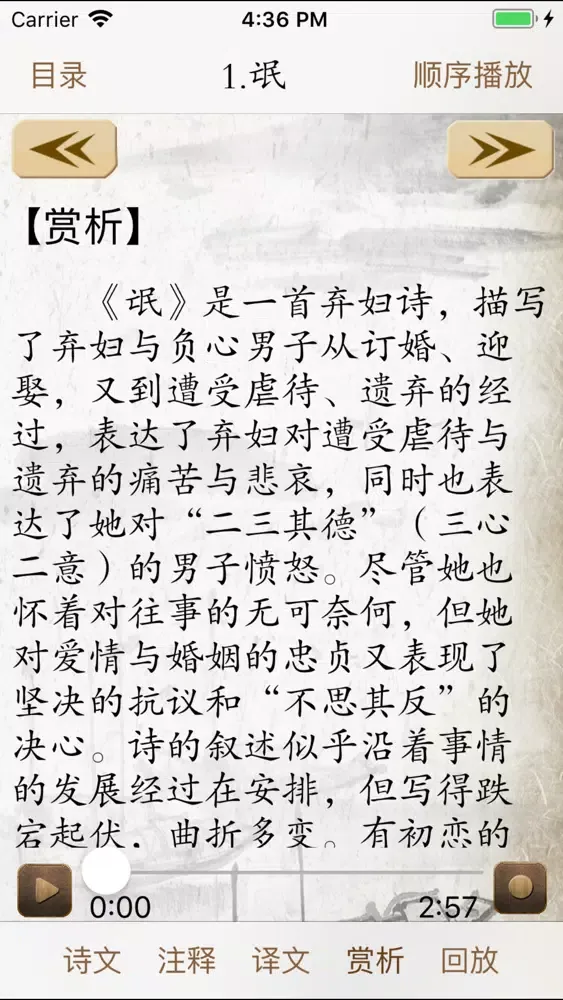 Carrier 4:36 PM
目录 1.氓 顺序播放
【赏析】
《氓》是一首弃妇诗，描写
了弃妇与负心男子从订婚、迎
娶，又到遭受虐待、遗弃的经
过，表达了弃妇对遭受虐待与
遗弃的痛苦与悲哀，同时也表
达了她对“二三其德”（三心
二意）的男子愤怒。尽管她也
怀着对往事的无可奈何，但她
对爱情与婚姻的忠贞又表现了
坚决的抗议和“不思其反”的
决心。诗的叙述似乎沿着事情
的发展经过在安排，但写得跌
宕起伏，曲折多变。有初恋的
0:00 2:57
诗文 注释 译文 赏析 回放